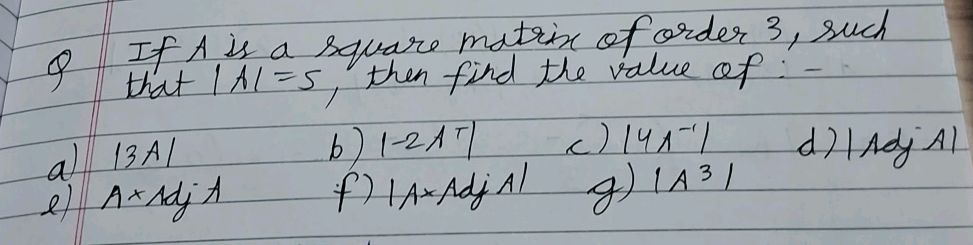 Q If A is a square matrix of order 3, such
that |A|=5, then find the value of :-
a) |3A| b) |-2Aᵀ| c) |4A⁻¹| d) |Adj A|
e) A×Adj A f) |A×Adj A| g) |A³|